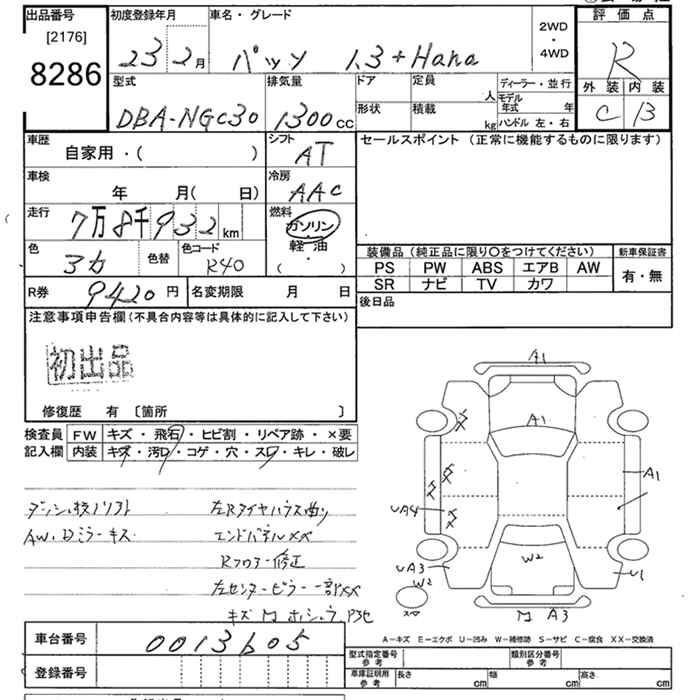 出品番号 初度登録年月 車名・グレード 2WD ・ 4WD 評価点
[2176]
8286
23 2月 パッソ 1.3+Hana R
型式 排気量 ドア 定員 人 ディーラー・並行 外装 内装
DBA-NGC30 1300cc 形状 積載 kg モデル年式 年 ハンドル 左・右 C B
車歴 自家用・( ) シフト AT セールスポイント (正常に機能するものに限ります)
車検 年 月( 日) 冷房 AAC
走行 7万8千932km 燃料 ガソリン・軽油 ( )
色 3カ 色替 色コード R40
装備品 (純正品に限り〇をつけてください) 新車保証書
PS PW ABS エアB AW 有・無
SR ナビ TV カワ
R券 9420円 名変期限 月 日 後日品
注意事項申告欄 (不具合内容等は具体的に記入して下さい)
初出品
修復歴 有 〔箇所 〕
検査員記入欄 FW キズ・飛石・ヒビ割・リペア跡・×要
内装 キズ・汚レ・コゲ・穴・スレ・キレ・破レ
A1
A1
A1
UA4
UA3
W2
W2
U1
A3
AW.Dミラーキズ エンドパネルXX
Rフロアー修正
左センターピラー一部XX
A-キズ E-エクボ U-凹み W-補修跡 S-サビ C-腐食 XX-交換済
車台番号 0013605
型式指定番号 参考 類別区分番号 参考
登録番号 車庫証明用 参考 長さ cm 幅 cm 高さ cm